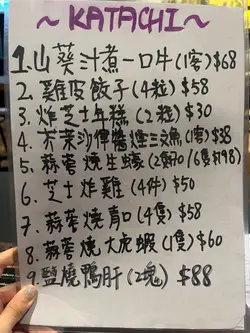 ~KATACHI~
1.山葵汁煮一口牛(1客)$68
2.雞皮餃子(4粒)$58
3.炸芝士年糕(2粒)$30
4.芥茉沙律醬燒三文魚(1客)$38
5.蒜蓉燒生蠔(2隻70/6隻198)
6.芝士炸雞(4件)$50
7.蒜蓉燒青口(4隻)$58
8.蒜蓉燒大虎蝦(1隻)$60
9.鹽燒鴨肝(2塊)$88